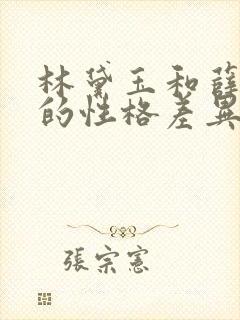 林黛玉和薛
的性格差異
張宗憲